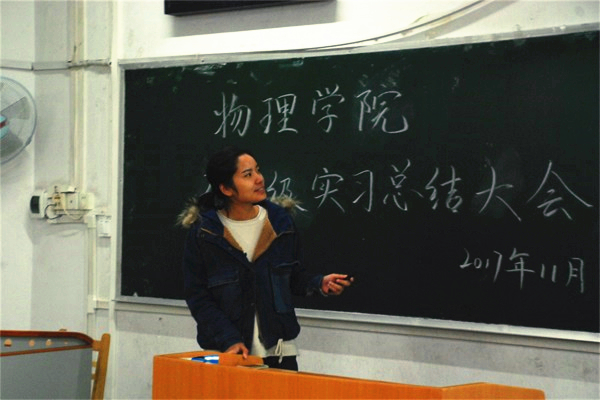 物理学院
级实习总结大会
2017年11月